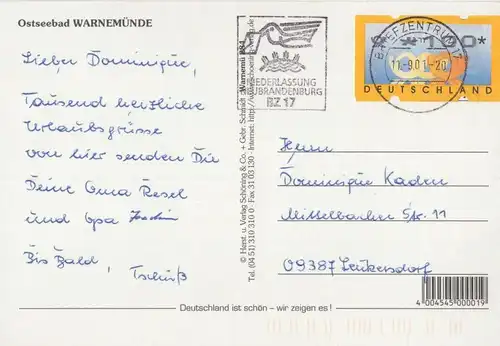 Ostseebad WARNEMÜNDE
Lieber Dominique,
Tausend herzliche
Urlaubsgrüsse
von hier senden Die
Deine Oma Resel
und Opa Joachim
Bis Bald,
Tschüß
© Herst. u. Verlag Schöning & Co. + Gebr. Schmidt
Tel. (04 51) 310 310 0 · Fax 31 03 130 · Internet:
Warnemü
NIEDERLASSUNG
NEUBRANDENBURG
BZ 17
BRIEFZENTRUM 17
11.-9.01-20
DEUTSCHLAND
Herrn
Dominique Kaden
Mittelbacher Str. 11
09387 Leukersdorf
4 004545 000019
Deutschland ist schön – wir zeigen es !